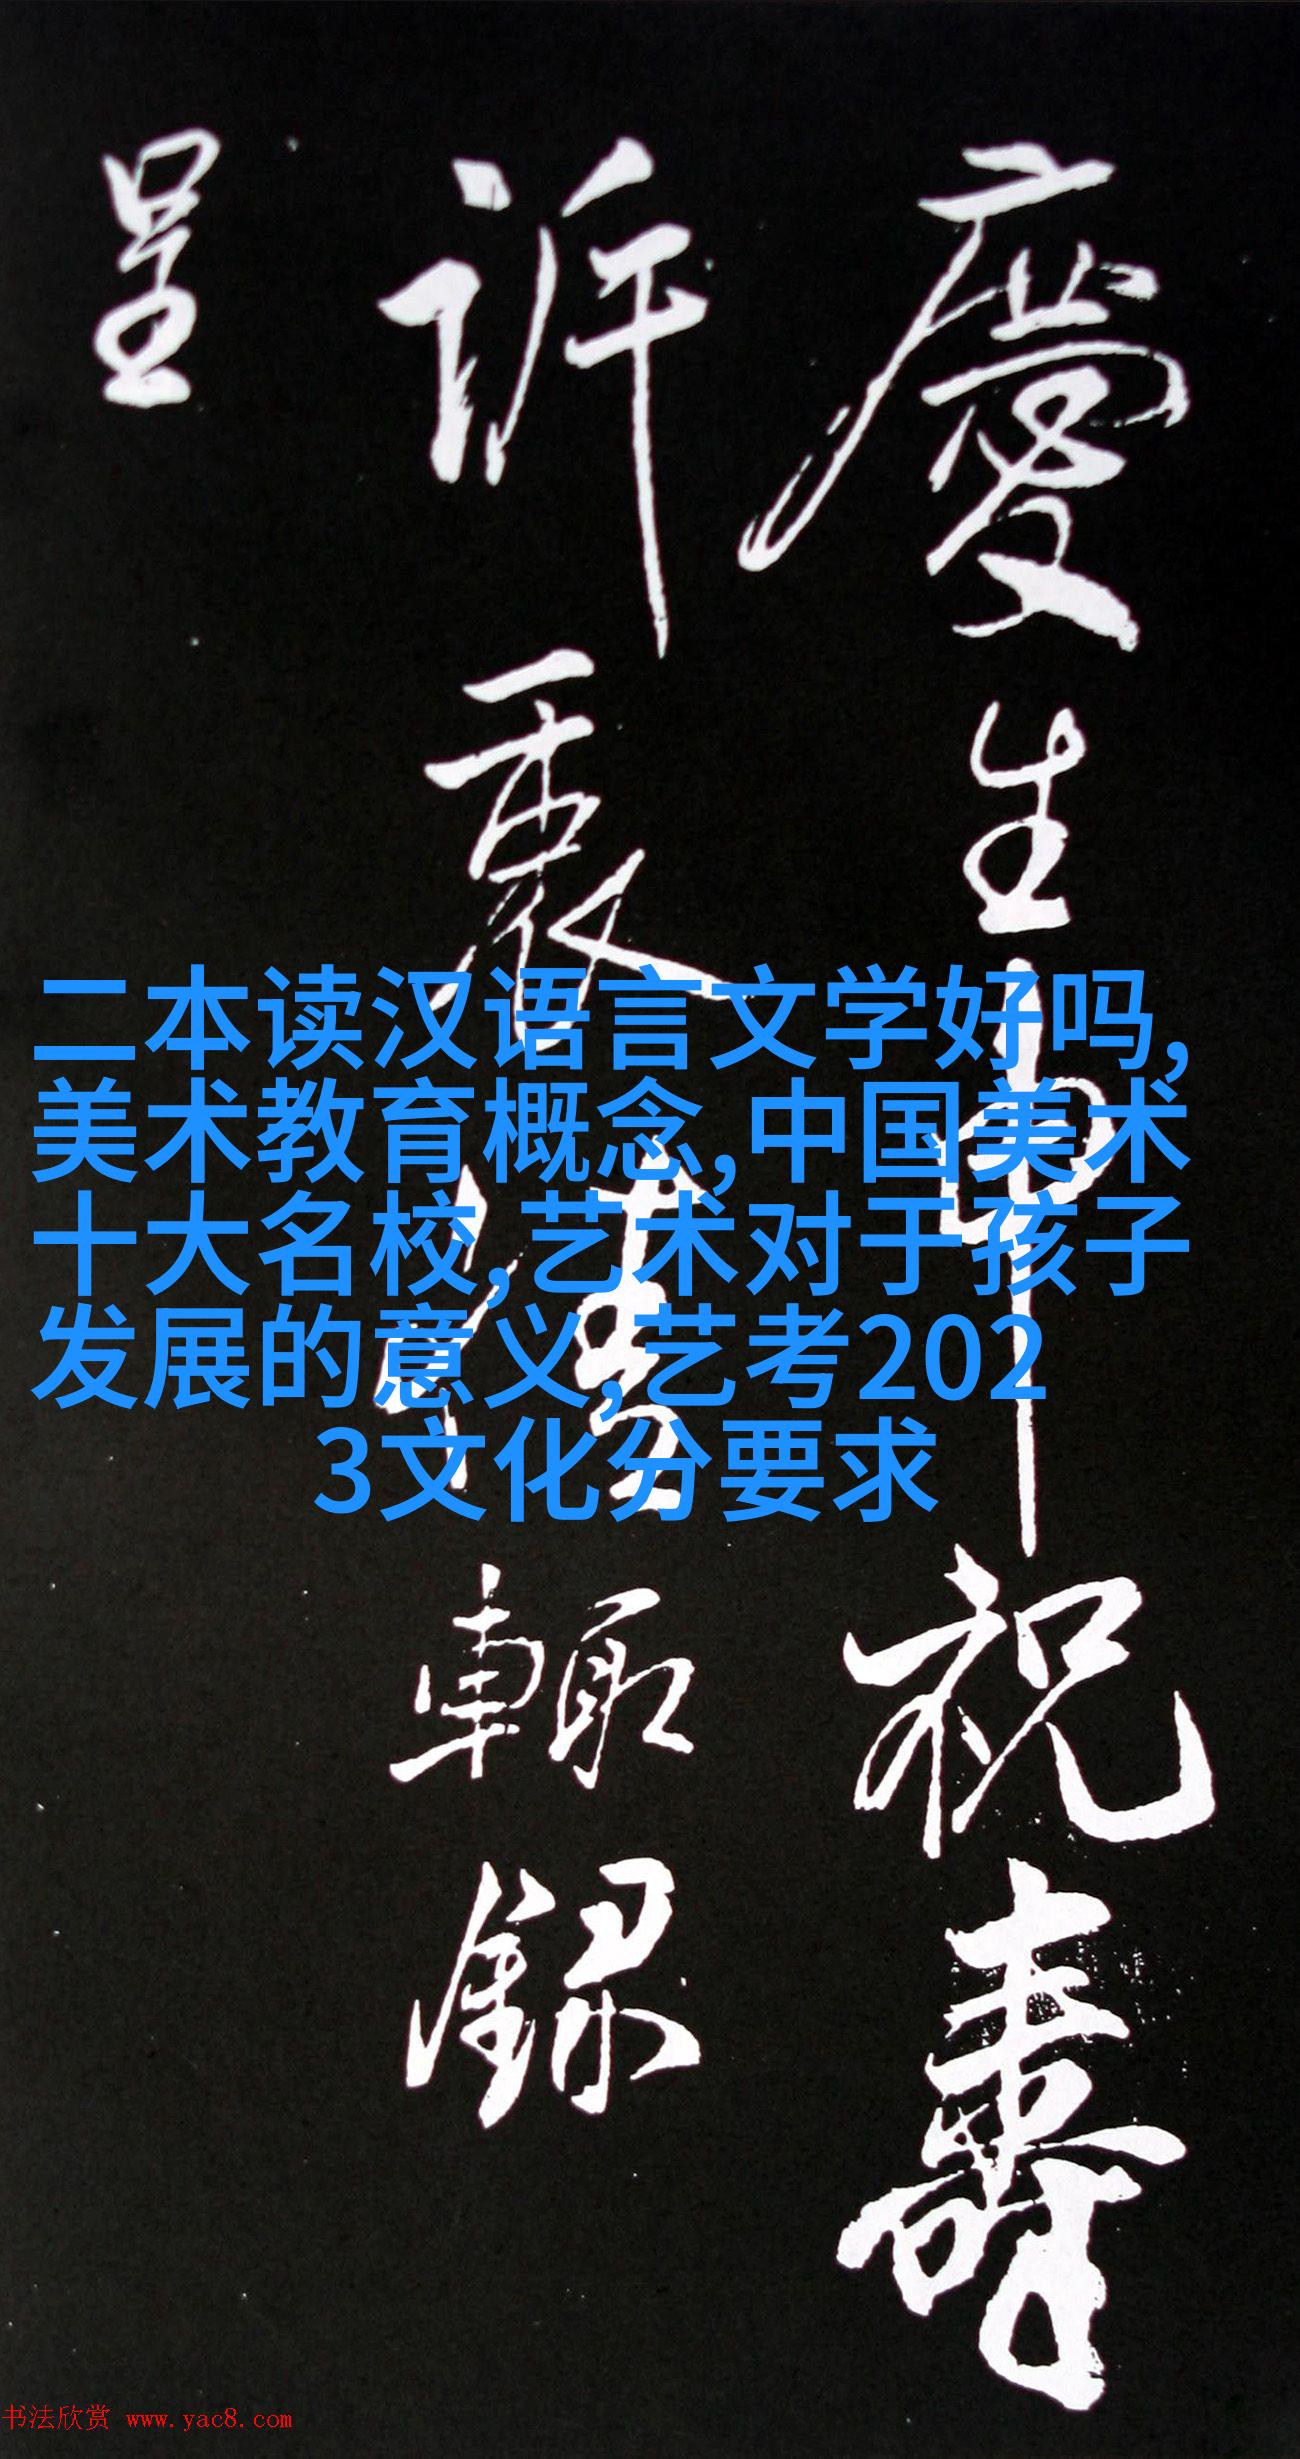 慶生申祝壽
訴衷情輒録
呈
二本读汉语言文学好吗,
美术教育概念,中国美术
十大名校,艺术对于孩子
发展的意义,艺考202
3文化分要求
书法欣赏 www.yac8.com